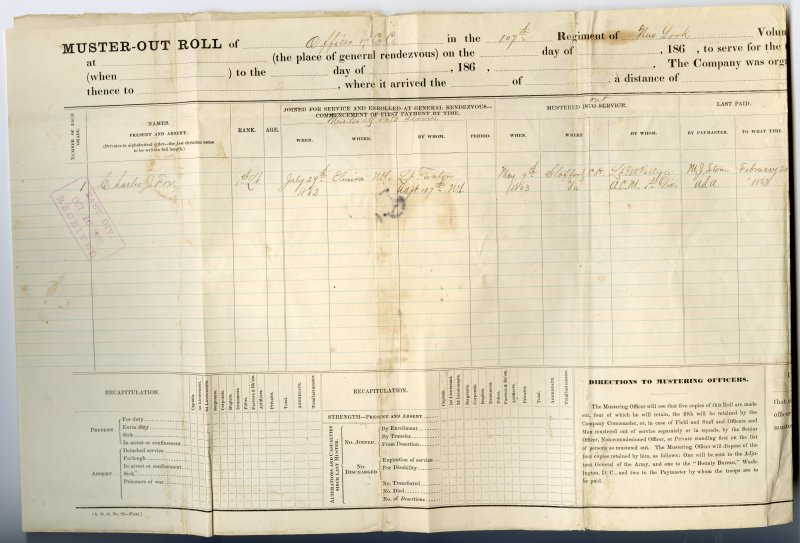 MUSTER-OUT ROLL of Officer of Co. C. in the 107th Regiment of New York Volun
at (the place of general rendezvous) on the day of , 186 , to serve for the t
(when ) to the day of , 186 , . The Company was orga
thence to , where it arrived the of , a distance of
NUMBER OF EACH GRADE.
NAMES.
PRESENT AND ABSENT.
(Privates in alphabetical order—the first christian name to be written full length.)
RANK.
AGE.
JOINED FOR SERVICE AND ENROLLED AT GENERAL RENDEZVOUS—
COMMENCEMENT OF FIRST PAYMENT BY TIME.
WHEN.
WHERE.
BY WHOM.
PERIOD.
out
MUSTERED INTO SERVICE.
WHEN.
WHERE
BY WHOM.
LAST PAID.
BY PAYMASTER.
TO WHAT TIME.
1 Charles J. Fox 1st Lt July 29th Elmira N.Y. May 9th Stafford C.H. February 28
1863 Va A.C.M. 1st Div. U.S.A. 1863
RECAPITULATION.
Captain.
1st Lieutenant.
2d Lieutenants.
Sergeants.
Corporals.
Buglers.
Drummers.
Fifers.
Farriers & Bl'ms.
Artificers.
Privates.
Total.
AGGREGATE.
Total last muster.
PRESENT
For duty
Extra duty
Sick
In arrest or confinement
ABSENT
Detached service
Furlough
In arrest or confinement
Sick
Prisoners of war
[A. G. O. No. —First.]
RECAPITULATION.
Captain.
1st Lieutenant.
2d Lieutenants.
Sergeants.
Corporals.
Buglers.
Drummers.
Fifers.
Farriers & Bl'ms.
Artificers.
Privates.
Total.
AGGREGATE.
Total last muster.
STRENGTH—PRESENT AND ABSENT
ALTERATIONS AND CASUALTIES SINCE LAST MUSTER.
NO. JOINED
By Enrollment
By Transfer
From Desertion
NO. DISCHARGED
Expiration of service
For Disability
No. Transferred
No. Died
No. of Desertions
DIRECTIONS TO MUSTERING OFFICERS.
The Mustering Officer will see that five copies of this Roll are made
out, four of which he will retain, the fifth will be retained by the
Company Commander, or, in case of Field and Staff and Officers and
Men mustered out of service separately or in squads, by the Senior
Officer, Non-commissioned Officer, or Private standing first on the list
of persons so mustered out. The Mustering Officer will dispose of the
four copies retained by him, as follows: One will be sent to the Adju-
tant General of the Army, and one to the "Bounty Bureau," Wash-
ington, D. C., and two to the Paymaster by whom the troops are to
be paid.
that
officer
muste